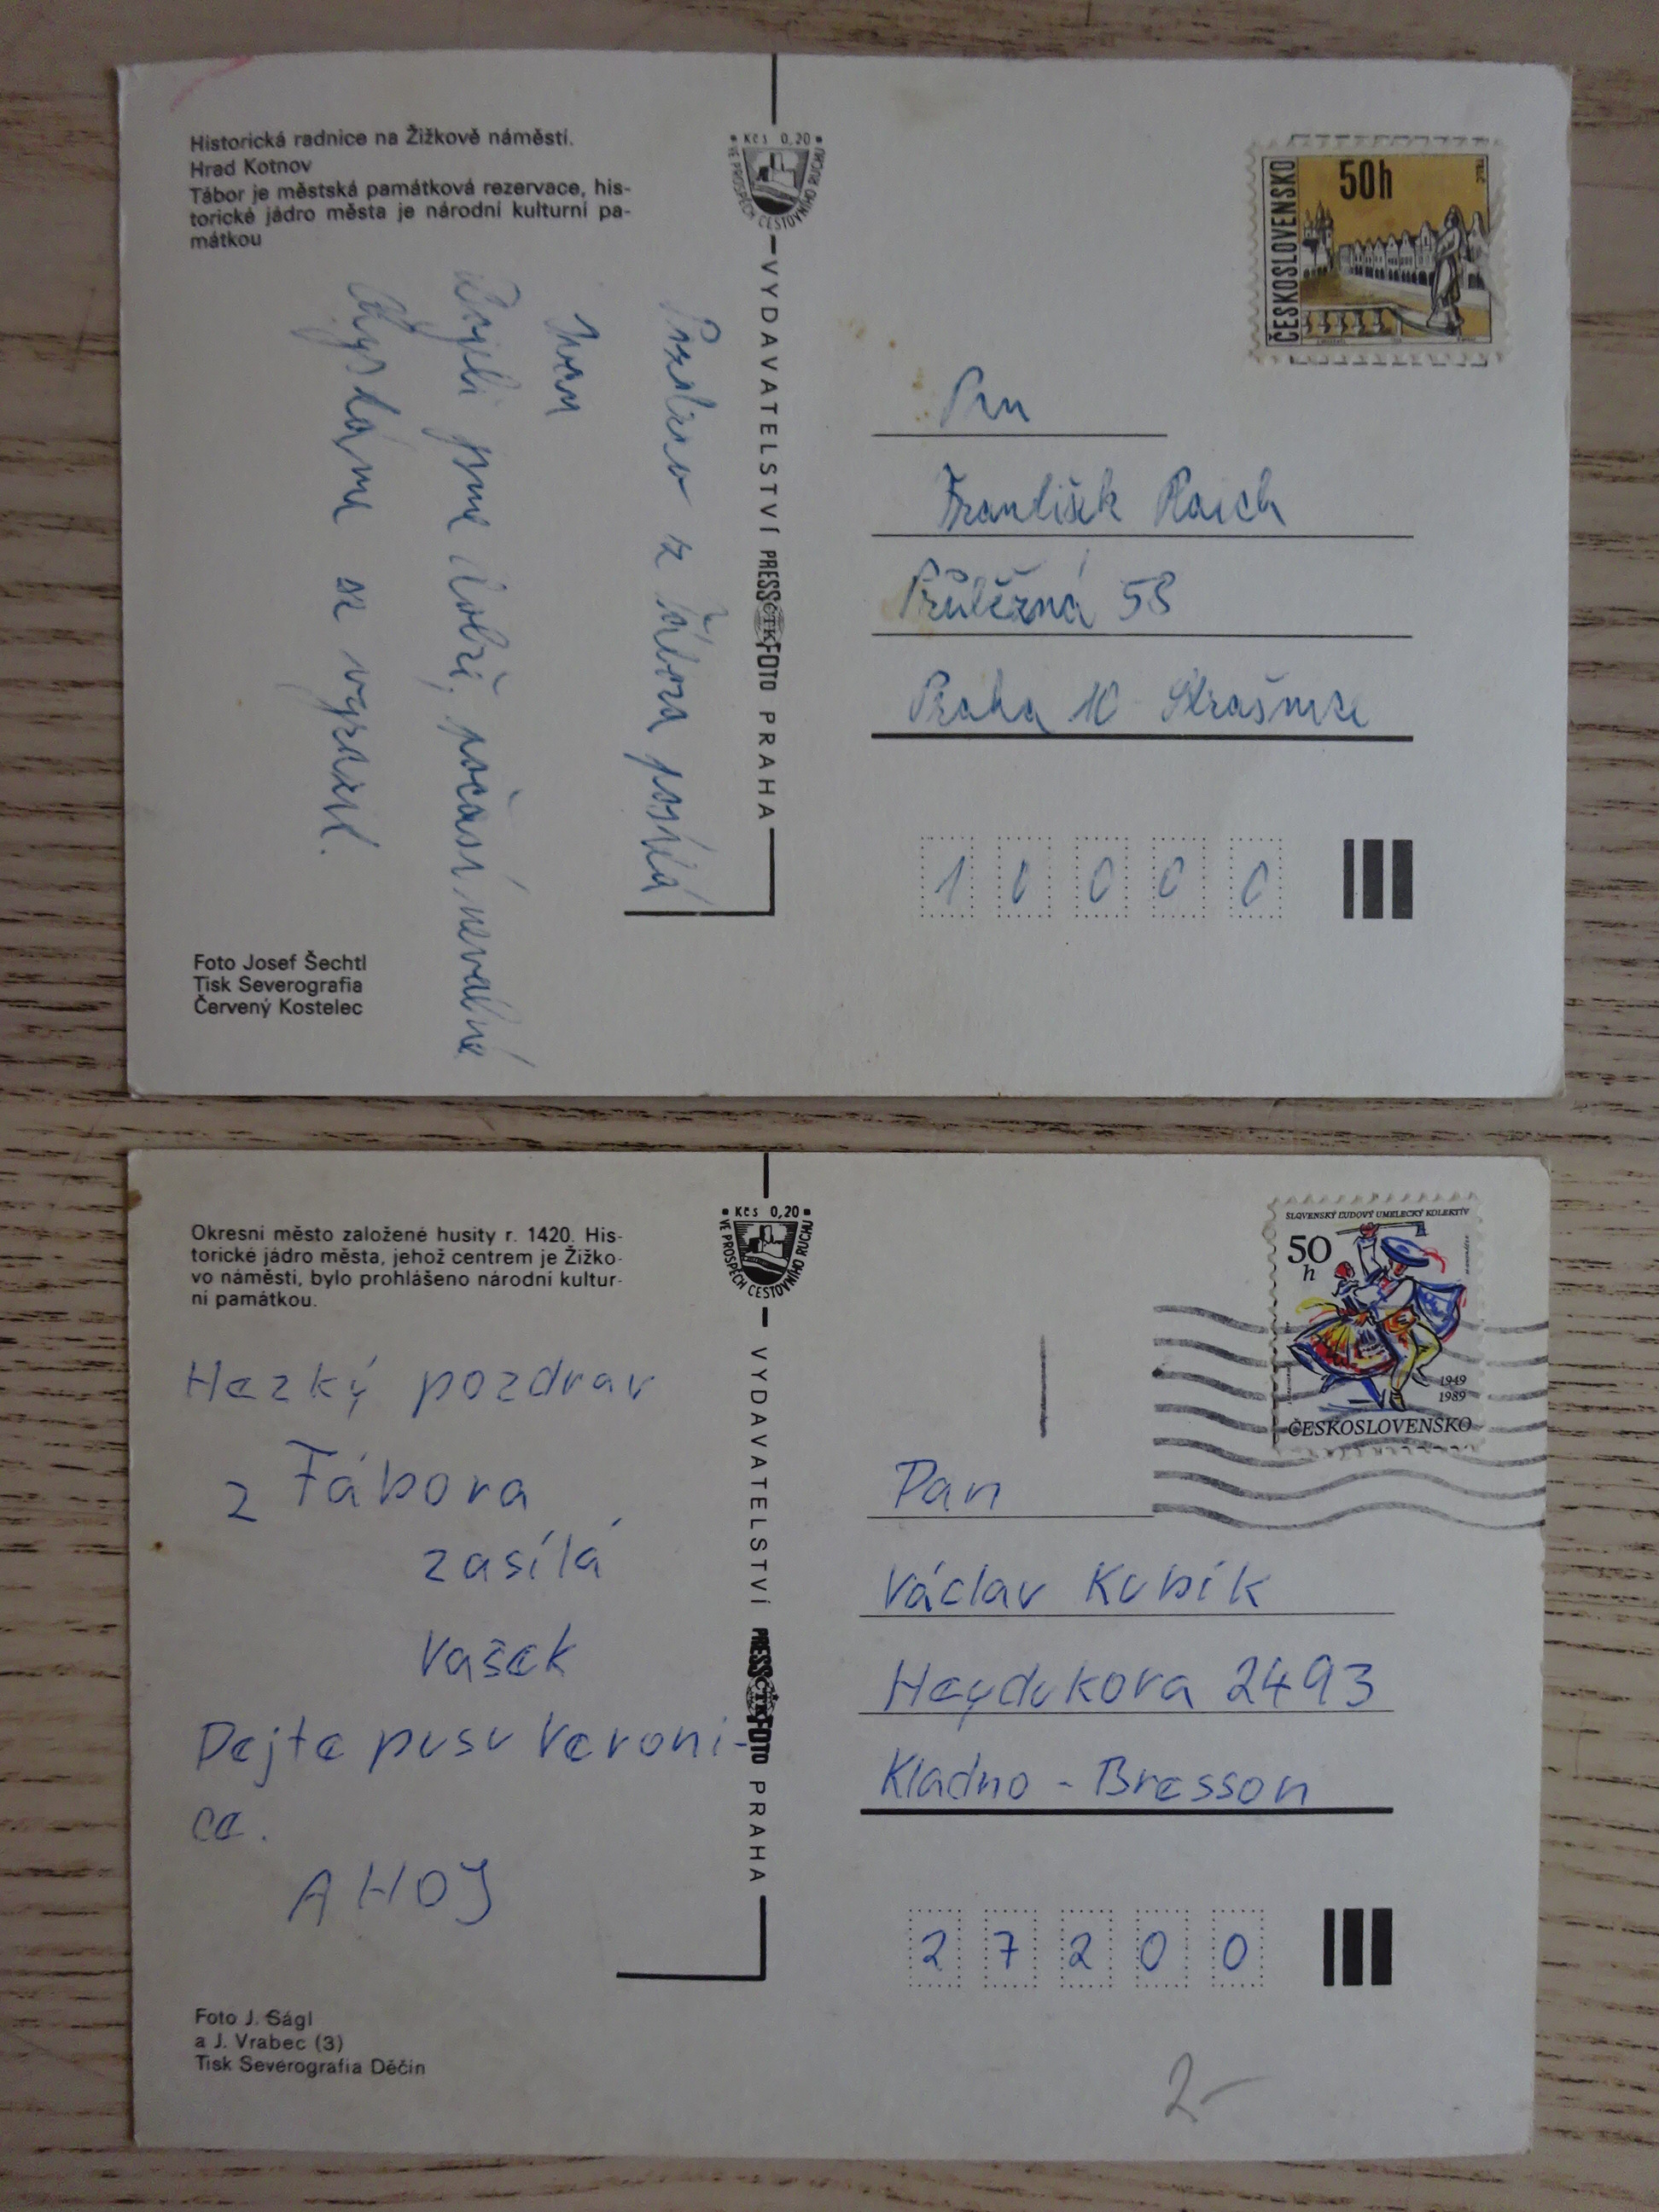 Historická radnice na Žižkově náměstí.
Hrad Kotnov
Tábor je městská památková rezervace, his-
torické jádro města je národní kulturní pa-
mátkou
Kčs 0,20
VE PROSPĚCH CESTOVNÍHO RUCHU
VYDAVATELSTVÍ PRESSFOTO PRAHA
ČTK
z Tábora posílá
Ivan
jsme dobří, počasí nevalné
se vyrazil.
Foto Josef Šechtl
Tisk Severografia
Červený Kostelec
ČESKOSLOVENSKO
50h
TELČ
Pan
František
Průběžná 58
Praha 10 Strašnice
10000
Okresní město založené husity r. 1420. His-
torické jádro města, jehož centrem je Žižko-
vo náměstí, bylo prohlášeno národní kultur-
ní památkou.
Kčs 0,20
VE PROSPĚCH CESTOVNÍHO RUCHU
VYDAVATELSTVÍ PRESSFOTO PRAHA
ČTK
Hezký pozdrav
z Tábora
zasílá
Vašek
Dejte pusu Veroni-
ce.
AHOJ
Foto J. Ságl
a J. Vrabec (3)
Tisk Severografia Děčín
SLOVENSKÝ ĽUDOVÝ UMELECKÝ KOLEKTÍV
50
h
1949
1989
ČESKOSLOVENSKO
Pan
Václav Kubík
Heydukova 2493
Kladno - Bresson
27200
2-